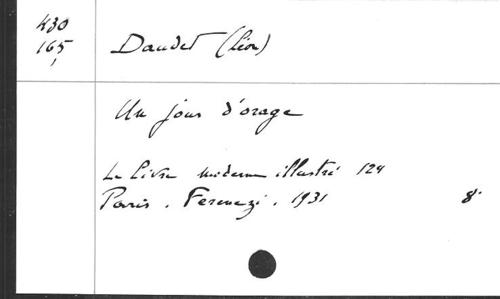 430
165
Daudet (Léon)
Un jour d'orage
Le Livre moderne illustré 124
Paris. Ferenczi. 1931 8°